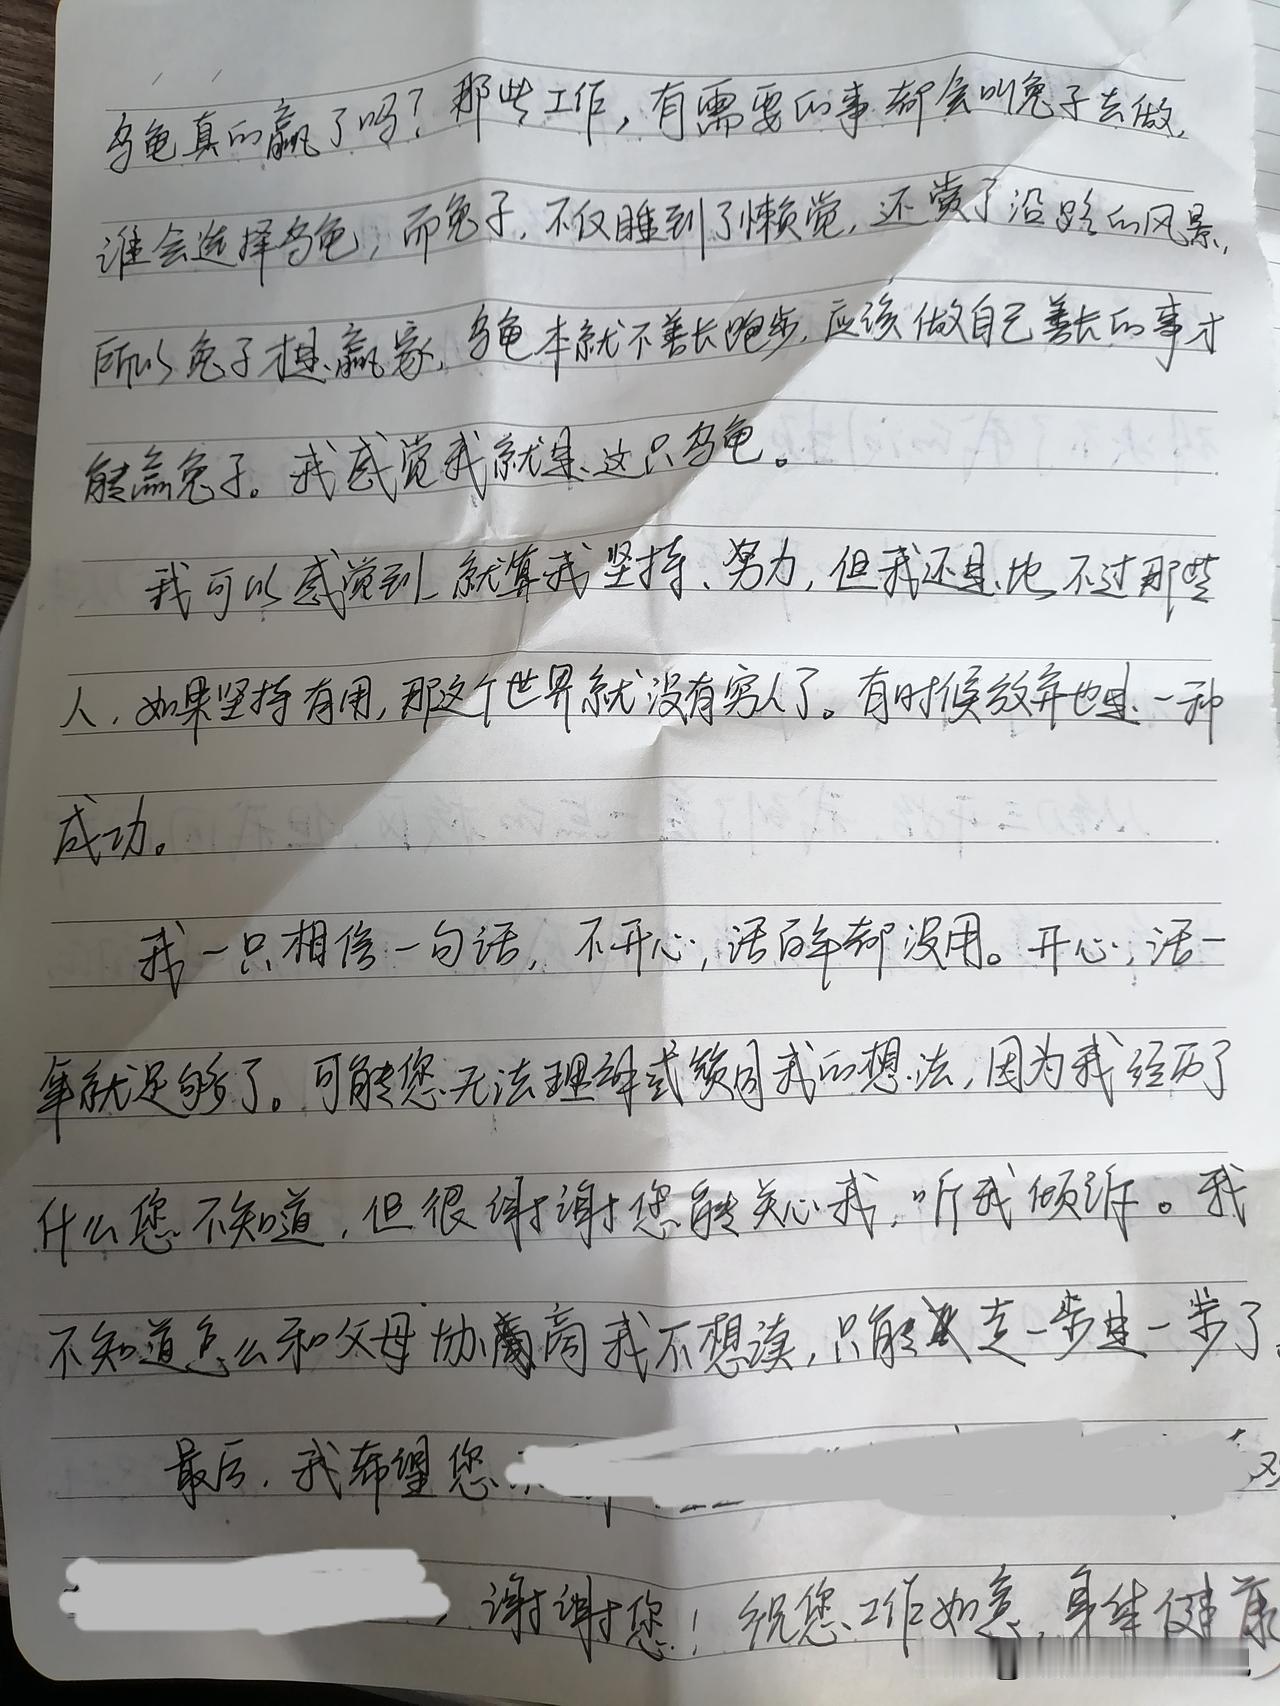 乌龟真的赢了吗？那些工作，有需要的事都会叫兔子去做，
谁会选择乌龟，而兔子，不仅睡到了懒觉，还赏了沿路的风景，
所以兔子才是赢家，乌龟本就不善长跑步，应该做自己善长的事才
能赢兔子。我感觉我就是这只乌龟。
我可以感觉到就算我坚持、努力，但我还是比不过那些
人，如果坚持有用，那这个世界就没有穷人了。有时候放弃也是一种
成功。
我一只相信一句话，不开心，活百年都没用。开心，活一
年就足够了。可能您无法理解或赞同我的想法，因为我经历了
什么您不知道，但很谢谢您能关心我，听我倾诉。我
不知道怎么和父母协商我不想读，只能走一步是一步了。
最后，我希望您
，谢谢您！祝您工作如意，身体健康